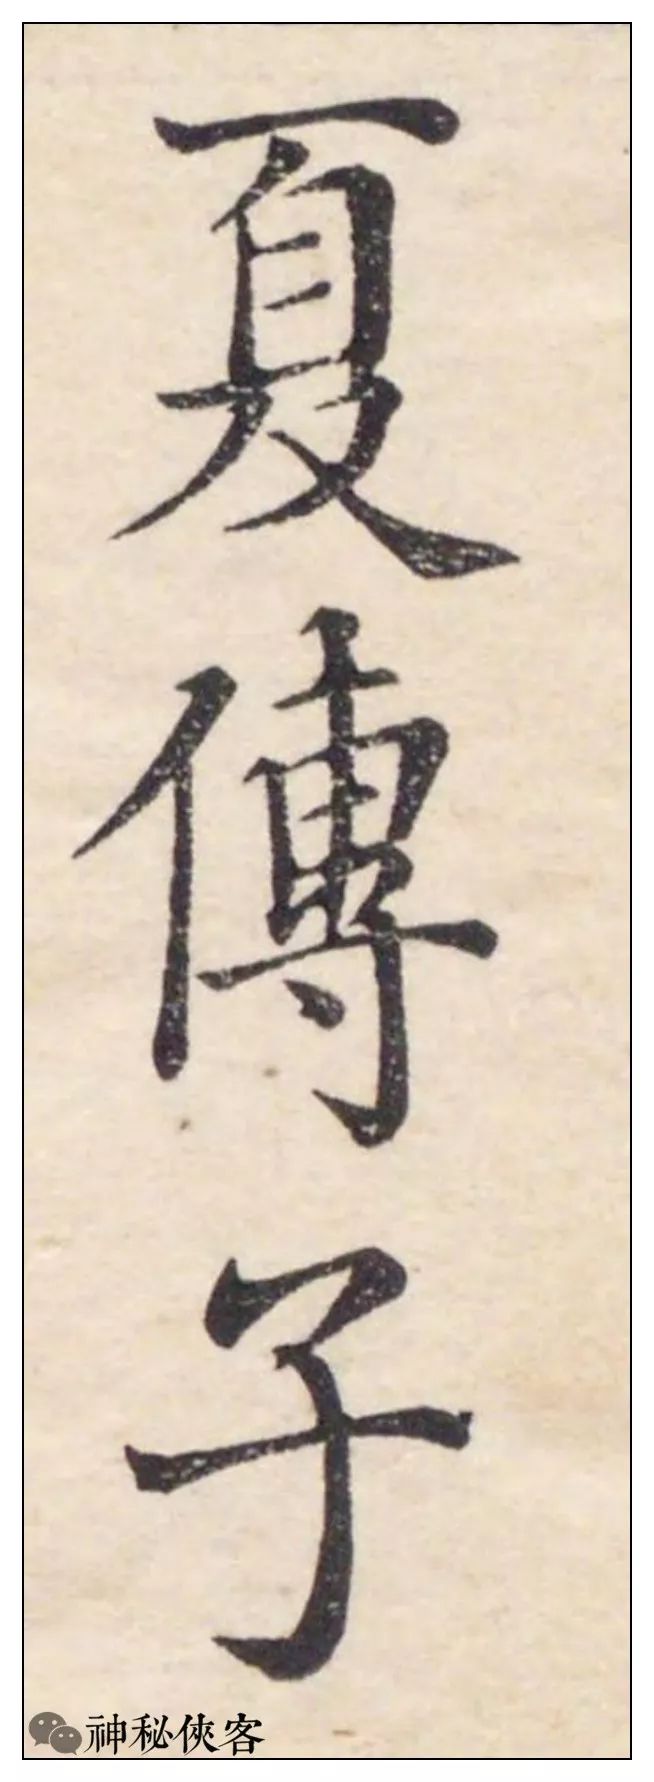 夏傳子
神秘俠客